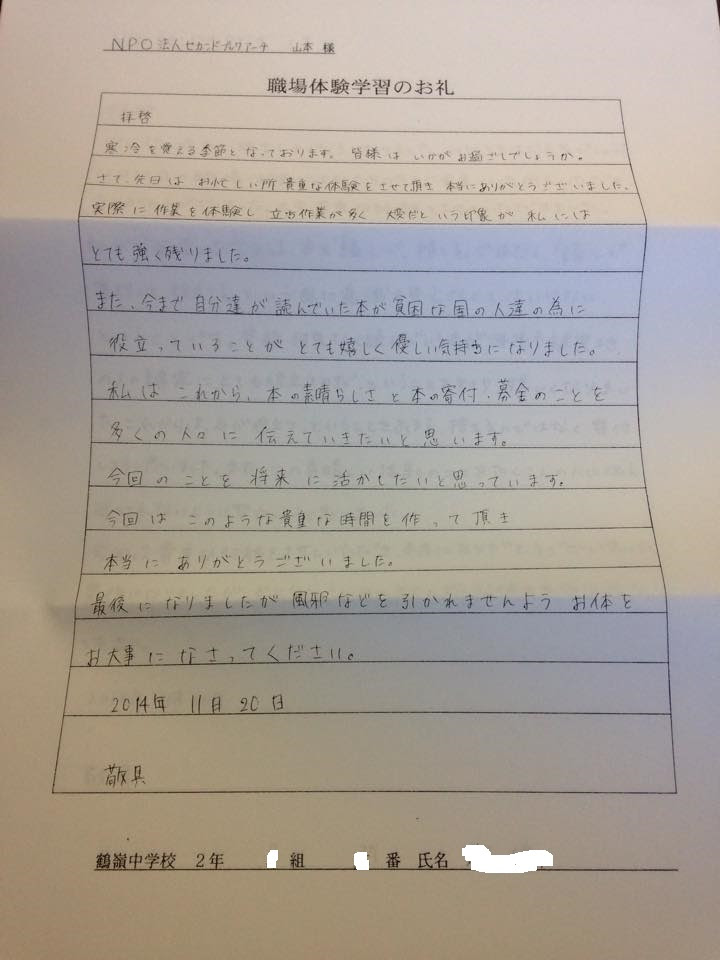 NPO法人セカンドブックアーチ 山本 様
職場体験学習のお礼
拝啓
寒冷を覚える季節となっております。皆様は いかがお過ごしでしょうか。
さて、先日は お忙しい所 貴重な体験をさせて頂き 本当にありがとうございました。
実際に 作業を体験し 立ち作業が多く 大変だという印象が 私には
とても強く残りました。
また、今まで 自分達が 読んでいた本が貧困な国の人達の為に
役立っていることが とても嬉しく優しい気持ちになりました。
私は これから、本の素晴らしさと本の寄付・募金のことを
多くの人々に 伝えていきたいと思います。
今回のことを 将来に活かしたいと思っています。
今回は このような貴重な時間を作って頂き
本当に ありがとうございました。
最後になりましたが 風邪などを引かれませんよう お体を
お大事になさってください。
2014年 11月 20日
敬具
鶴嶺中学校 2年 組 番 氏名